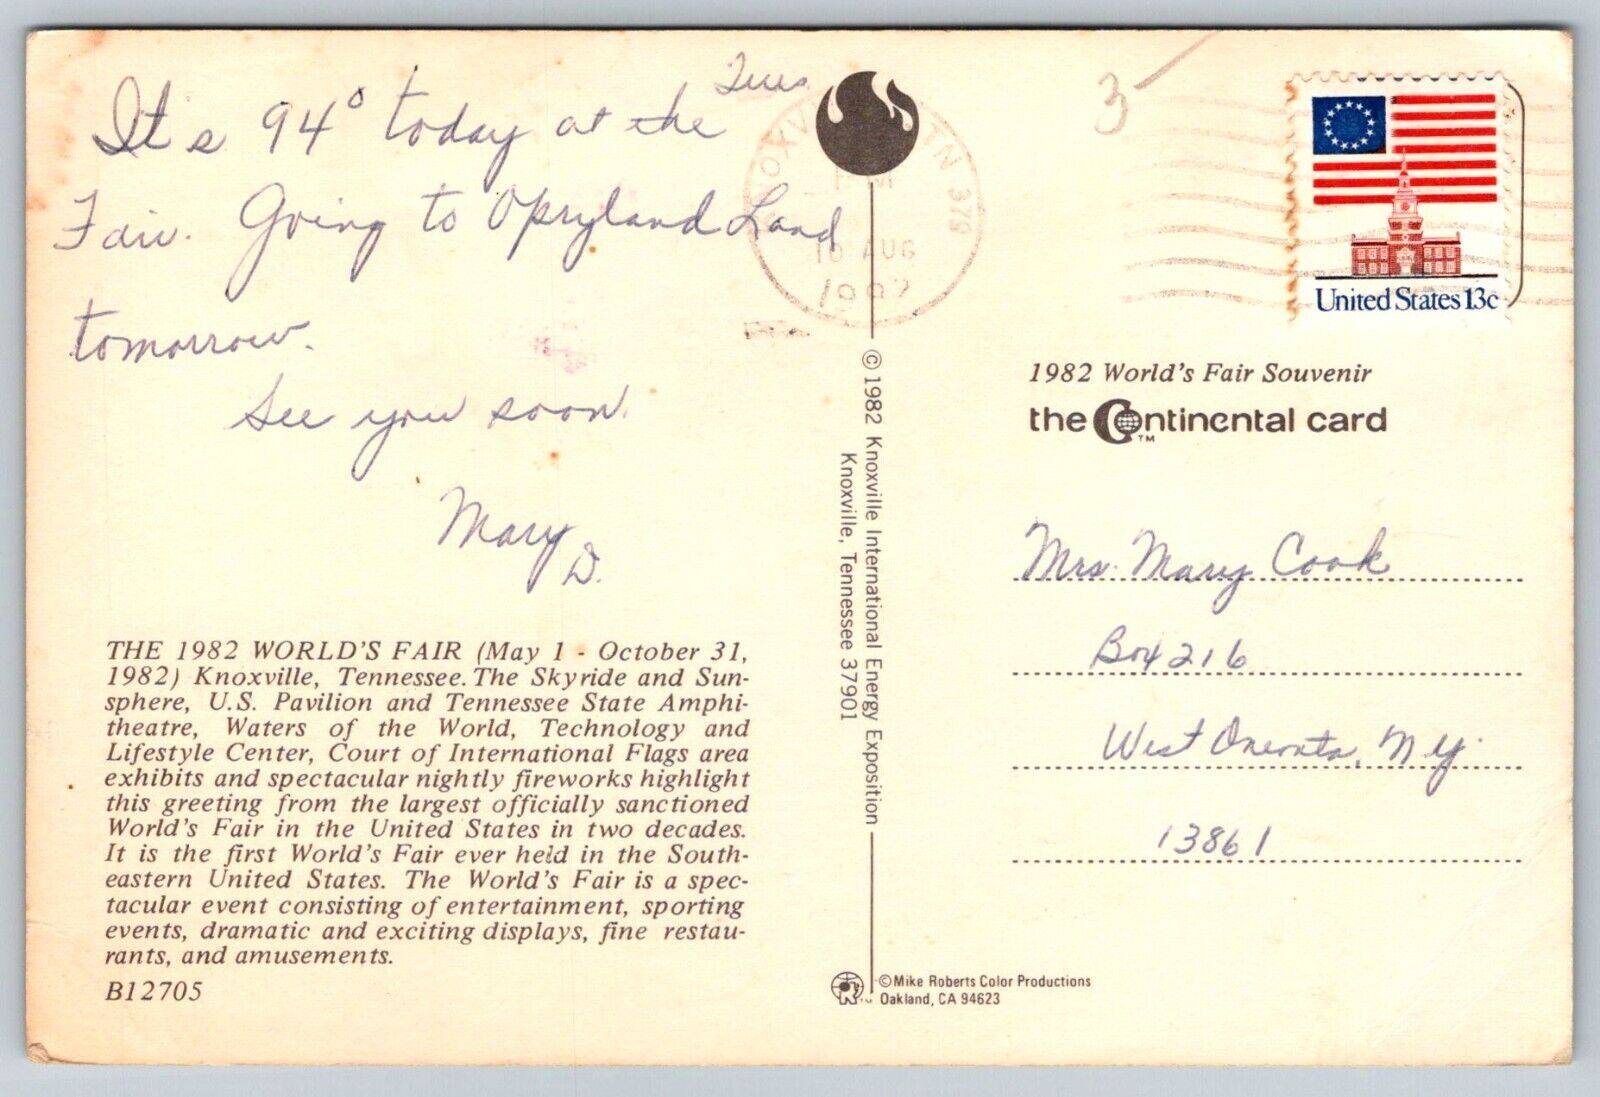 Tues
It's 94° today at the
Fair. Going to Opryland Land
tomorrow.
See you soon.
Mary
D.
THE 1982 WORLD'S FAIR (May 1 - October 31,
1982) Knoxville, Tennessee. The Skyride and Sun-
sphere, U.S. Pavilion and Tennessee State Amphi-
theatre, Waters of the World, Technology and
Lifestyle Center, Court of International Flags area
exhibits and spectacular nightly fireworks highlight
this greeting from the largest officially sanctioned
World's Fair in the United States in two decades.
It is the first World's Fair ever held in the South-
eastern United States. The World's Fair is a spec-
tacular event consisting of entertainment, sporting
events, dramatic and exciting displays, fine restau-
rants, and amusements.
B12705
TN 379
PM
10 AUG
© 1982 Knoxville International Energy Exposition
Knoxville, Tennessee 37901
© Mike Roberts Color Productions
Oakland, CA 94623
3-
United States 13c
1982 World's Fair Souvenir
the Continental card
TM
Mrs. Mary Cook
Box 216
West Oneonta, N.Y.
13861